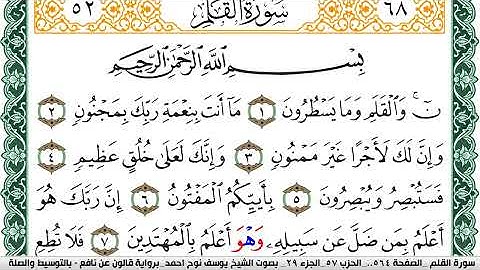 ٥٢ سُورَةُ القَلَمِ ٦٨
بِسْمِ اللَّهِ الرَّحْمَٰنِ الرَّحِيمِ
نٓ وَالْقَلَمِ وَمَا يَسْطُرُونَ ١ مَا أَنتَ بِنِعْمَةِ رَبِّكَ بِمَجْنُونٍ ٢
وَإِنَّ لَكَ لَأَجْرًا غَيْرَ مَمْنُونٍ ٣ وَإِنَّكَ لَعَلَىٰ خُلُقٍ عَظِيمٍ ٤
فَسَتُبْصِرُ وَيُبْصِرُونَ ٥ بِأَييِّكُمُ الْمَفْتُونُ ٦ إِنَّ رَبَّكَ هُوَ
أَعْلَمُ بِمَن ضَلَّ عَن سَبِيلِهِۦ وَهْوَ أَعْلَمُ بِالْمُهْتَدِينَ ٧ فَلَا تُطِعِ
سورة القلم _الصفحة ٥٦٤.. الحزب ٥٧_الجزء ٢٩_ بصوت الشيخ يوسف نوح احمد_ برواية قالون عن نافع - بالتوسيط والصلة